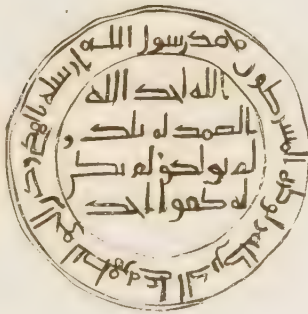 الله احد الله
الصمد لم يلد و
لم يولد و لم يكن
له كفوا احد
محمد رسول الله ارسله بالهدى ودين الحق ليظهره على الدين كله ولو كره المشركون